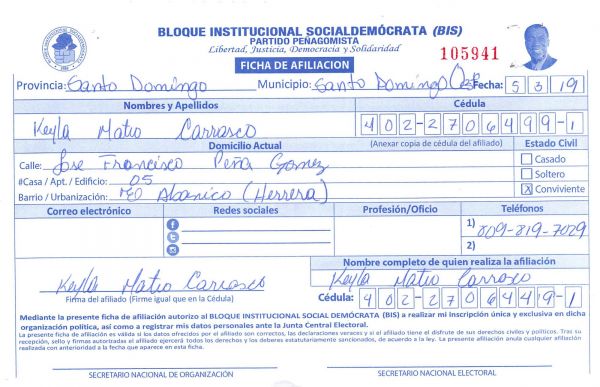 BLOQUE INSTITUCIONAL SOCIALDEMÓCRATA (BIS)
PARTIDO PEÑAGOMISTA
Libertad, Justicia, Democracia y Solidaridad
105941
FICHA DE AFILIACION
Provincia: Santo Domingo Municipio: Santo Domingo Fecha: 5 3 19
Nombres y Apellidos Cédula
Keyla Mateo Carrasco 402-2706499-1
Domicilio Actual (Anexar copia de cédula del afiliado) Estado Civil
Calle: Jose Francisco Peña Gomez Casado
#Casa / Apt. / Edificio: 05 Soltero
Barrio / Urbanización: El Abanico (Herrera) X Conviviente
Correo electrónico Redes sociales Profesión/Oficio Teléfonos
1) 809-819-7029
2)
Nombre completo de quien realiza la afiliación
Keyla Mateo Carrasco Keyla Mateo Carrasco
Firma del afiliado (Firme igual que en la Cédula) Cédula: 402-2706449-1
Mediante la presente ficha de afiliación autorizo al BLOQUE INSTITUCIONAL SOCIAL DEMÓCRATA (BIS) a realizar mi inscripción única y exclusiva en dicha
organización política, así como a registrar mis datos personales ante la Junta Central Electoral.
La presente ficha de afiliación es válida si los datos ofrecidos por el afiliado son correctos, las declaraciones veraces y si el afiliado tiene el disfrute de sus derechos civiles y políticos. Tras su
recepción, sello y firmas autorizadas el afiliado ejercerá todos los derechos y los deberes estatutariamente sancionados, de acuerdo a la ley. La presente afiliación anula cualquier afiliación
realizada con anterioridad a la fecha que aparece en esta ficha.
SECRETARIO NACIONAL DE ORGANIZACIÓN SECRETARIO NACIONAL ELECTORAL